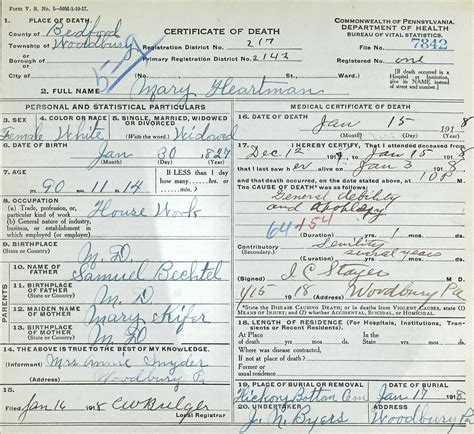 Form V. S. No. 5—505C-1-10-17.
1. PLACE OF DEATH.
County of Bedford
Township of Woodbury
or
Borough of
or
City of
CERTIFICATE OF DEATH
Registration District No. 217
Primary Registration District No. 2142
(No. St. Ward)
COMMONWEALTH OF PENNSYLVANIA
DEPARTMENT OF HEALTH
BUREAU OF VITAL STATISTICS.
File No. 7842
Registered No. one
[If death occurred in a Hospital or Institution, give its NAME instead of street and number.]
2. FULL NAME Mary Heartman
PERSONAL AND STATISTICAL PARTICULARS
3. SEX
Female
4. COLOR OR RACE
White
5. SINGLE, MARRIED, WIDOWED OR DIVORCED
(Write the word) Widowed
6. DATE OF BIRTH
Jan 30 1827
(Month) (Day) (Year)
7. AGE
90 yrs. 11 mos. 14 ds.
IF LESS than 1 day
how many
8. OCCUPATION
(a) Trade, profession, or particular kind of work House Work
(b) General nature of industry, business, or establishment in which employed (or employer)
9. BIRTHPLACE
(State or Country) M.D.
PARENTS
10. NAME OF FATHER
Samuel Bechtel
11. BIRTHPLACE OF FATHER
(State or Country) M.D.
12. MAIDEN NAME OF MOTHER
Mary
13. BIRTHPLACE OF MOTHER
(State or Country) M.D.
14. THE ABOVE IS TRUE TO THE BEST OF MY KNOWLEDGE.
(Informant) Mrs Annie Snyder
(Address) Woodbury Pa
15.
Filed Jan 16 1918 CW Bulger
MEDICAL CERTIFICATE OF DEATH
16. DATE OF DEATH
Jan 15 1918
(Month) (Day) (Year)
17. I HEREBY CERTIFY, That I attended deceased from
Dec 12 1917 to Jan 15 1918
that I last saw her alive on Jan 3 1918
and that death occurred, on the date stated above, at
The CAUSE OF DEATH* was as follows:
General debility
and apoplexy
64 154
(Duration) yrs. mos. ds.
Contributory Senility
(Secondary)
(Duration) several years
(Signed) I C Stayer
1/15 1918 (Address) Woodbury Pa
*State the DISEASE CAUSING DEATH; or in deaths from VIOLENT CAUSES, state (1) MEANS OF INJURY; and (2) whether ACCIDENTAL, SUICIDAL, or HOMICIDAL.
18. LENGTH OF RESIDENCE (For Hospitals, Institutions, Transients or Recent Residents).
At place of death yrs. mos. ds.
In the State yrs. mos. ds.
Where was disease contracted,
if not at place of death?
Former or
usual residence
19. PLACE OF BURIAL OR REMOVAL
Hickory Bottom Cem
DATE OF BURIAL
Jan 17 1918
20. UNDERTAKER
J. N. Byers
ADDRESS
Woodbury Pa